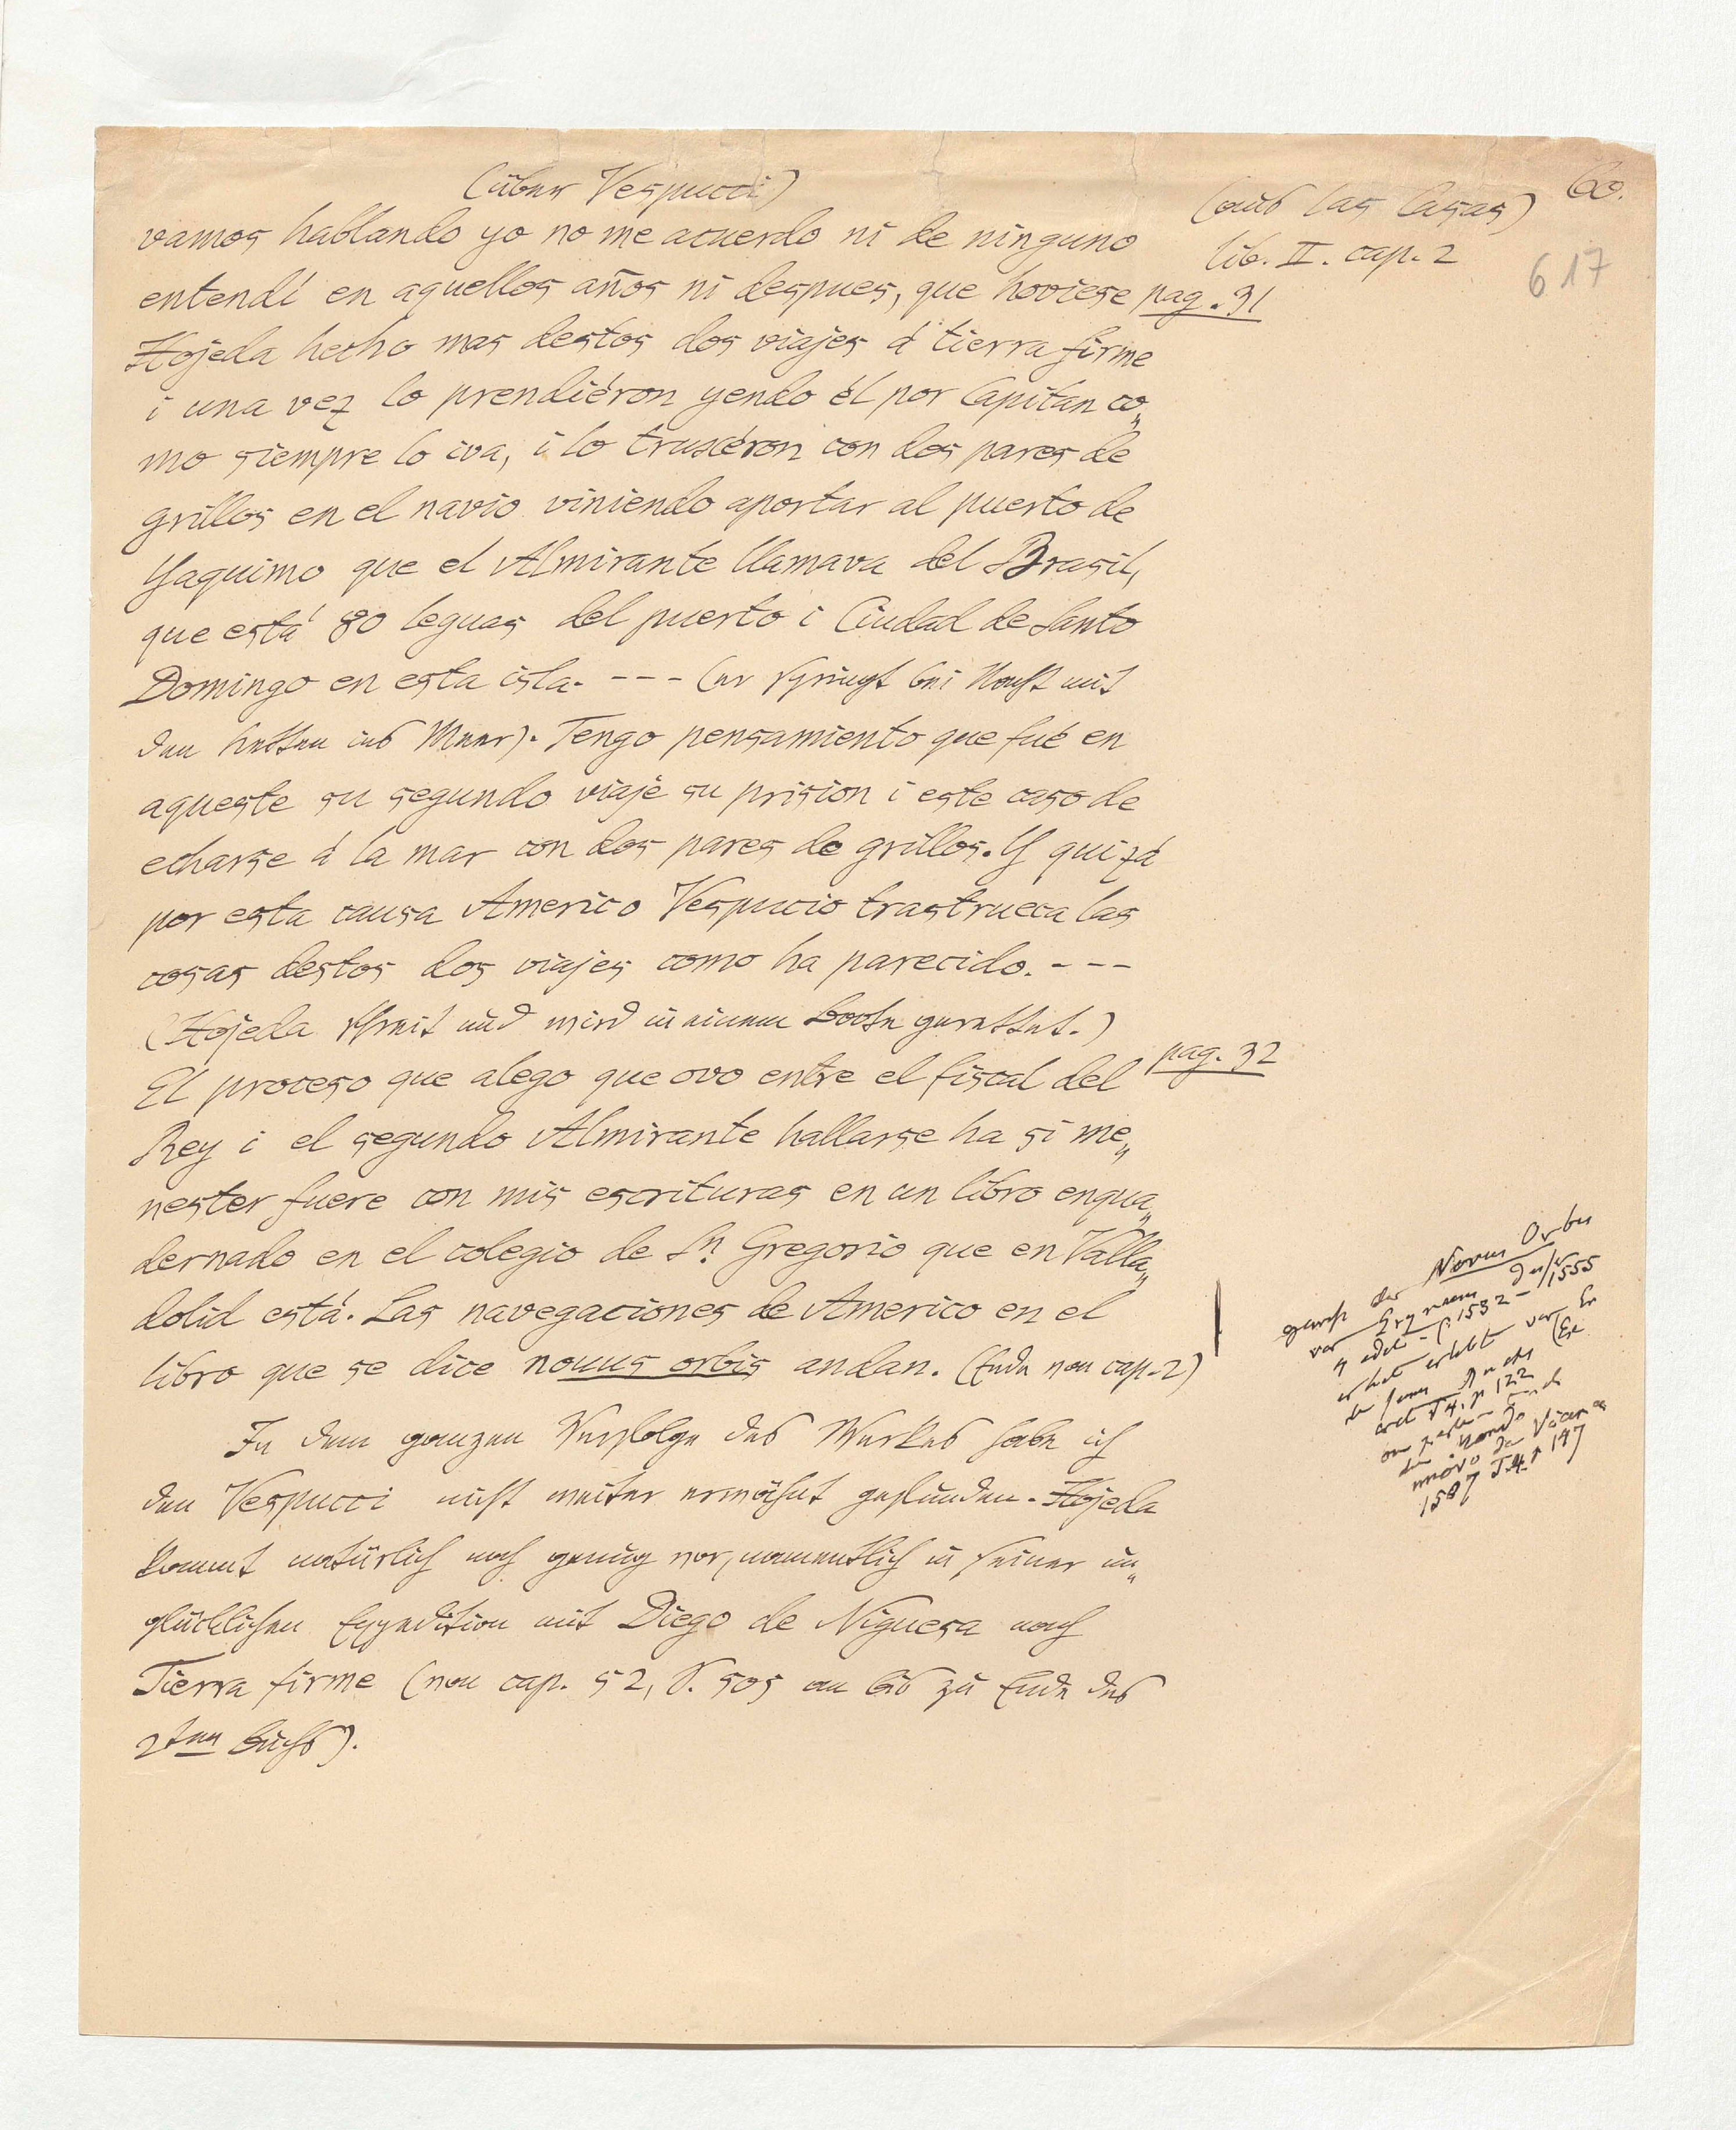 (über Vespucci)
(aus las Casas)
60.
lib. II. cap. 2
617
vamos hablando yo no me acuerdo ni de ninguno
entendí en aquellos años ni despues, que hoviese
pag. 31
Hojeda hecho mas destos dos viajes á tierra firme
i una vez lo prendiéron yendo él por Capitan co„
mo siempre lo iva, i lo truxéron con dos pares de
grillos en el navio viniendo aportar al puerto de
Yaquimo que el Almirante llamava del Brasil,
que está 80 leguas del puerto i Ciudad de Santo
Domingo en esta isla. - - - (er springt bei Nacht mit
den Ketten ins Meer). Tengo pensamiento que fué en
aqueste su segundo viaje su prision i este caso de
echarse á la mar con dos pares de grillos. Y quizá
por esta causa Americo Vespucio trastrueca las
cosas destos dos viajes como ha parecido. - - -
(Hojeda schreit und wird in einem Boote gerettet.)
pag. 32
El proceso que alego que ovo entre el fiscal del
Rey i el segundo Almirante hallarse ha si me„
nester fuere con mis escrituras en un libro enqua„
dernado en el colegio de Sn. Gregorio que en Valla„
dolid está. Las navegaciones de Americo en el
libro que se dice nouus orbis andan. (Ende von cap. 2)
In dem ganzen Verfolge des Werkes habe ich
den Vespucci nicht weiter erwähnt gefunden. Hojeda
kommt natürlich noch genug vor, namentlich in seiner un„
glücklichen Expedition mit Diego de Niguesa nach
Tierra firme (von cap. 52, S. 505 an bis zu Ende des
2ten Buchs).
gewiss der Novus Orbis
von Grynaeus
edit 1532 – 1555
er hat erlebt
T 4. p 122
1507 T. 4. p 147